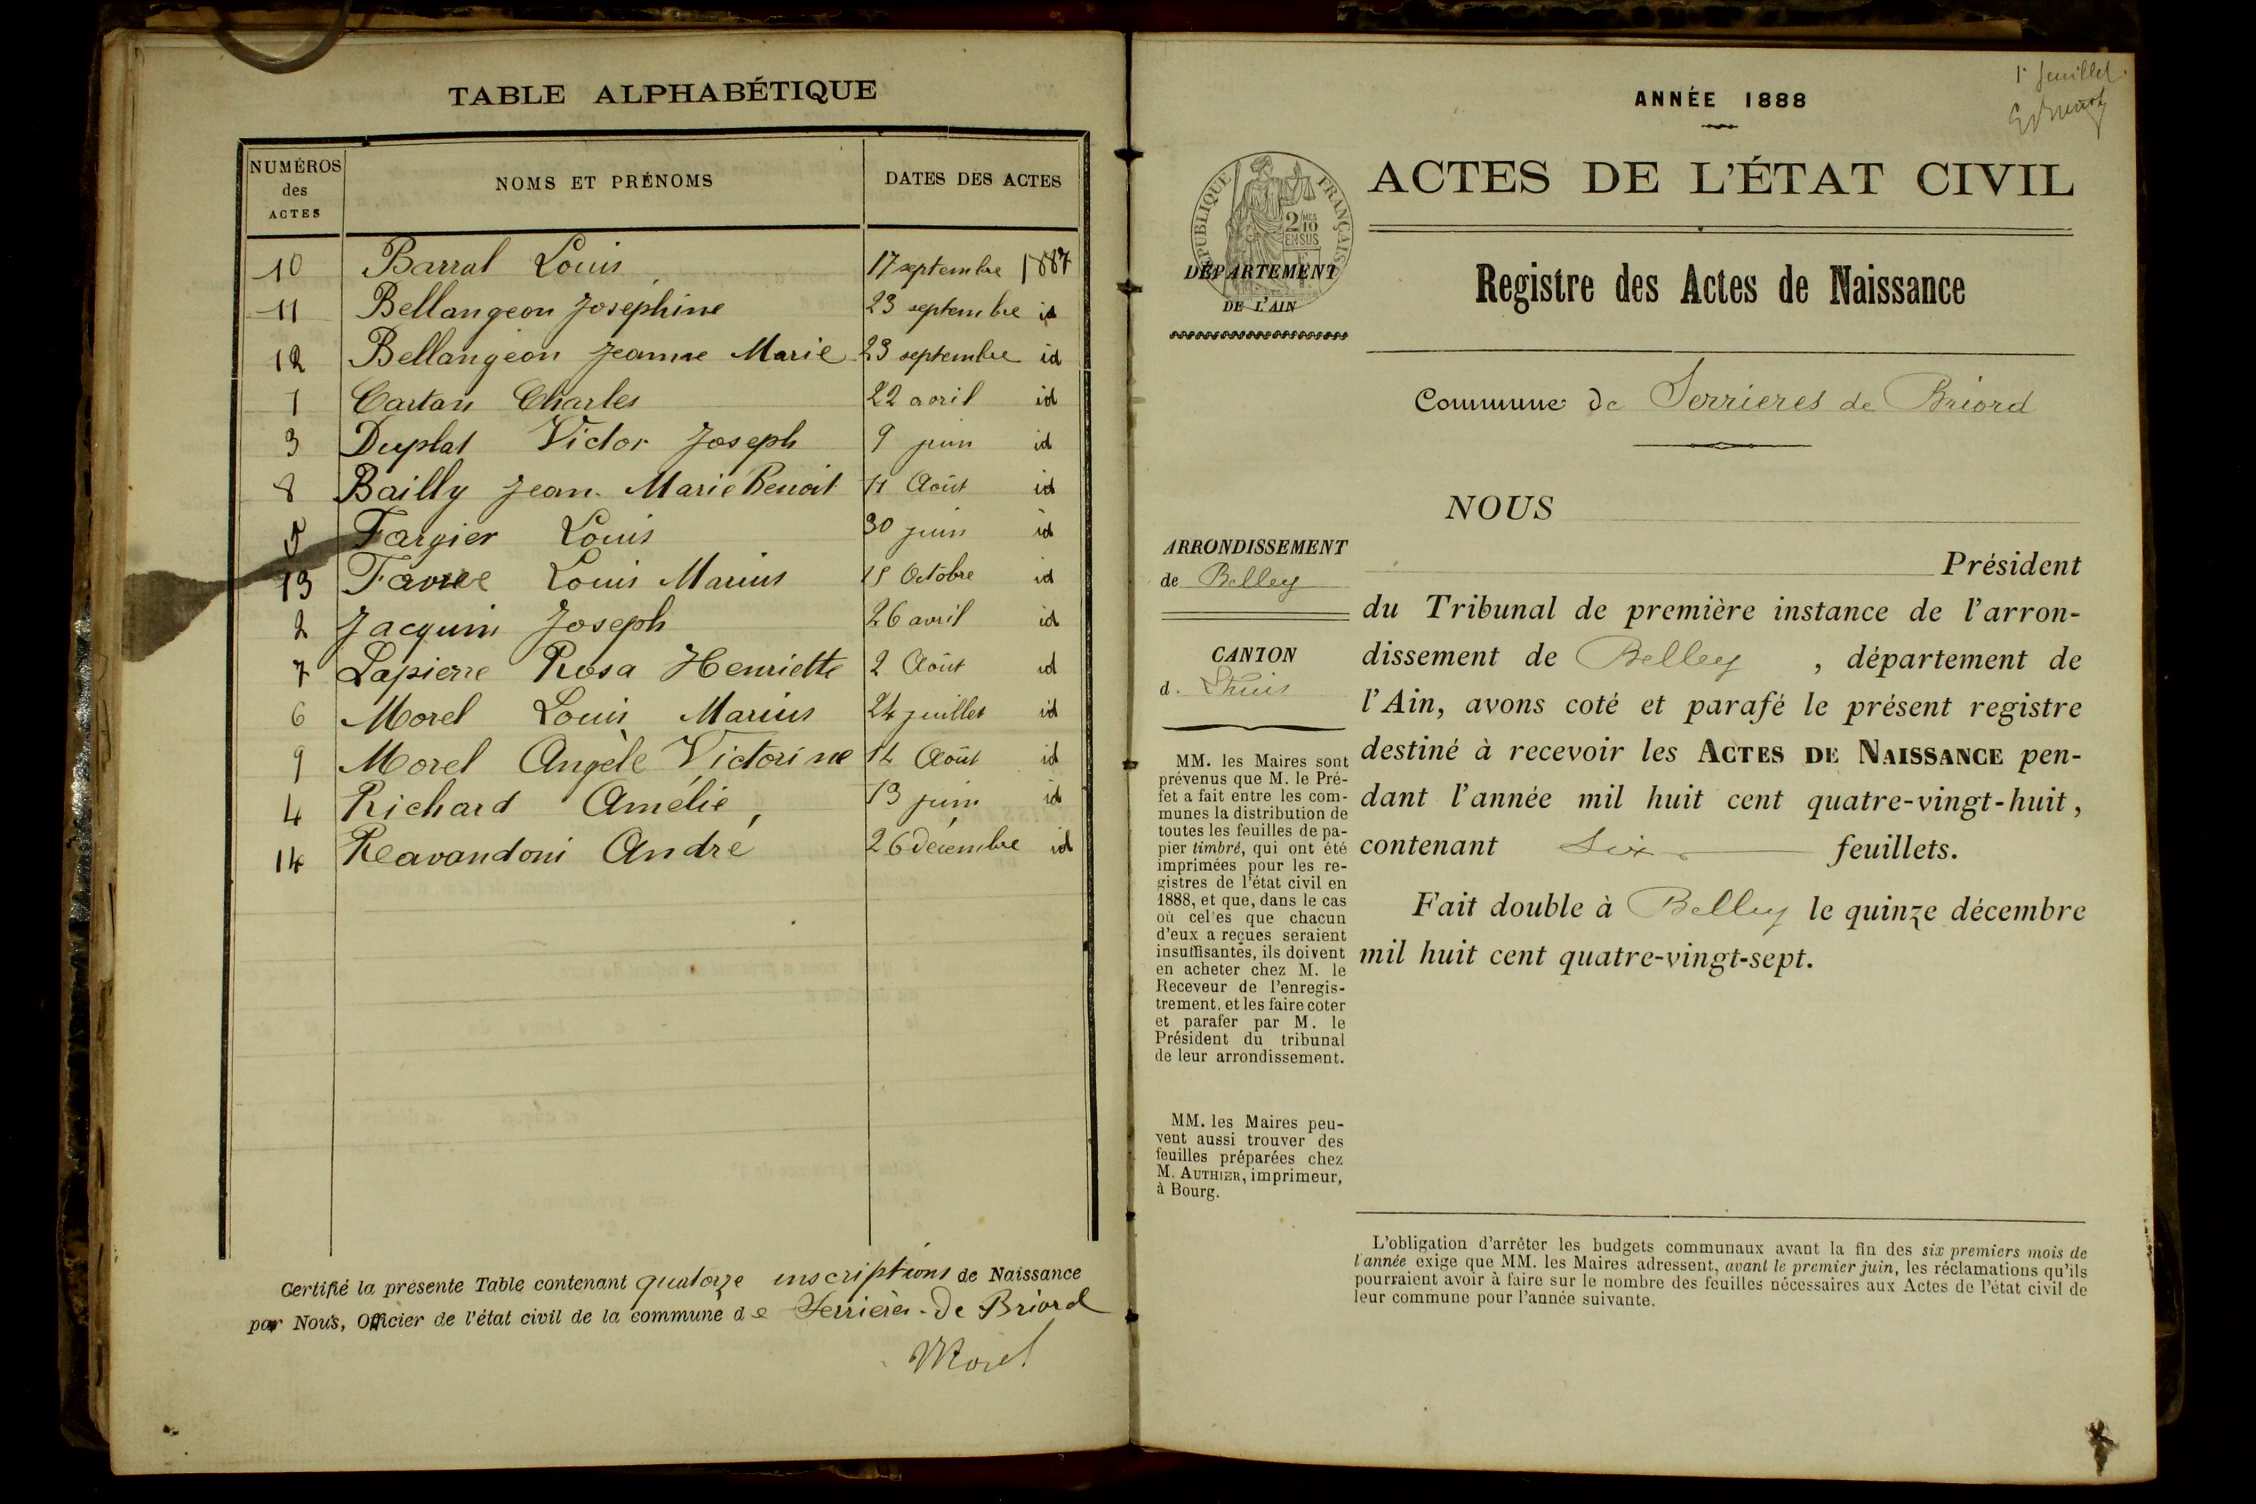 TABLE ALPHABÉTIQUE
NUMÉROS des ACTES NOMS ET PRÉNOMS DATES DES ACTES
10 Barral Louis 17 septembre 1887
11 Bellangeon Joséphine 23 septembre id
12 Bellangeon Jeanne Marie 23 septembre id
1 Cartan Charles 22 avril id
3 Duplat Victor Joseph 9 juin id
8 Bailly Jean Marie Benoit 11 Août id
5 Fargier Louis 30 juin id
13 Favre Louis Marius 15 Octobre id
2 Jacquin Joseph 26 avril id
7 Lapierre Rosa Henriette 2 Août id
6 Morel Louis Marius 24 juillet id
9 Morel Angèle Victorine 14 Août id
4 Richard Amélie 13 juin id
14 Reavandoni André 26 décembre id
Certifié la présente Table contenant quatorze inscriptions de Naissance
par Nous, Officier de l'état civil de la commune de Serrières-de Briord
Morel
1r feuillet
ANNÉE 1888
RÉPUBLIQUE FRANÇAISE
2/10 EN SUS
ACTES DE L'ÉTAT CIVIL
DÉPARTEMENT
DE L'AIN
Registre des Actes de Naissance
Commune de Serrieres de Briord
ARRONDISSEMENT
de Belley
CANTON
d. Lhuis
MM. les Maires sont
prévenus que M. le Pré-
fet a fait entre les com-
munes la distribution de
toutes les feuilles de pa-
pier timbré, qui ont été
imprimées pour les re-
gistres de l'état civil en
1888, et que, dans le cas
où celles que chacun
d'eux a reçues seraient
insuffisantes, ils doivent
en acheter chez M. le
Receveur de l'enregis-
trement, et les faire coter
et parafer par M. le
Président du tribunal
de leur arrondissement.
MM. les Maires peu-
vent aussi trouver des
feuilles préparées chez
M. AUTHIER, imprimeur,
à Bourg.
NOUS
Président
du Tribunal de première instance de l'arron-
dissement de Belley , département de
l'Ain, avons coté et parafé le présent registre
destiné à recevoir les ACTES DE NAISSANCE pen-
dant l'année mil huit cent quatre-vingt-huit,
contenant Six feuillets.
Fait double à Belley le quinze décembre
mil huit cent quatre-vingt-sept.
L'obligation d'arrêter les budgets communaux avant la fin des six premiers mois de
l'année exige que MM. les Maires adressent, avant le premier juin, les réclamations qu'ils
pourraient avoir à faire sur le nombre des feuilles nécessaires aux Actes de l'état civil de
leur commune pour l'année suivante.